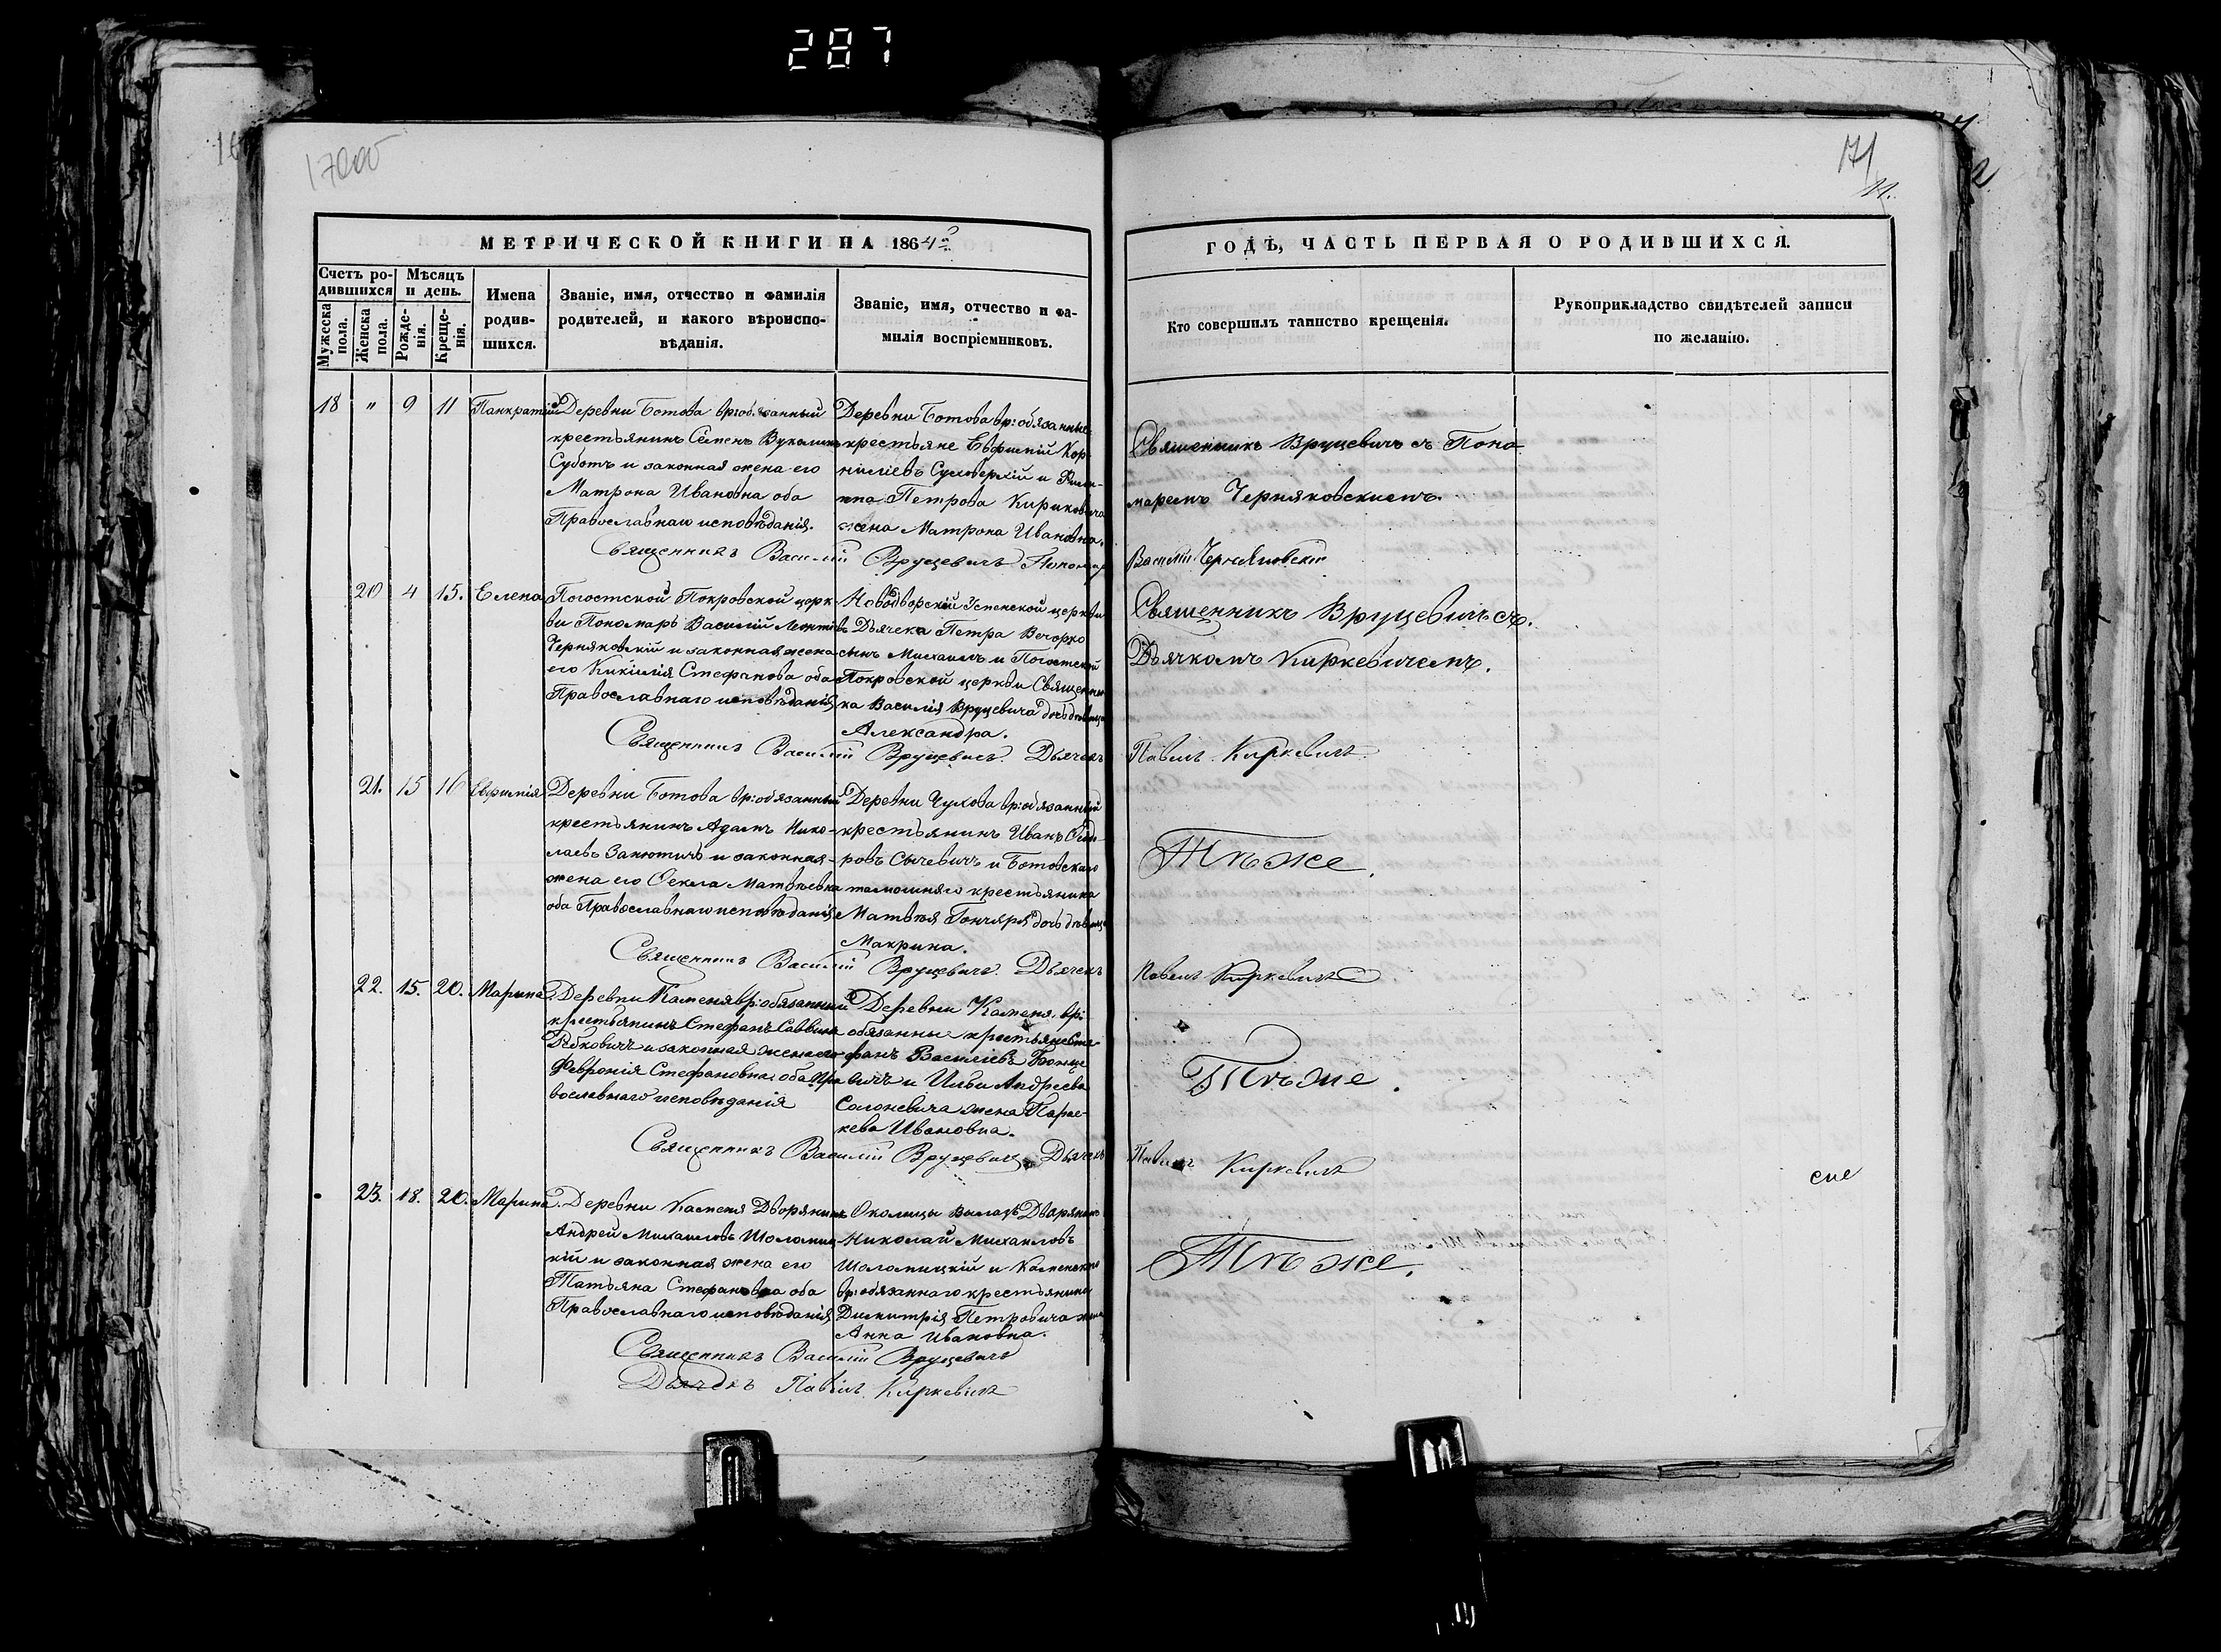 287
170об
171
11.
МЕТРИЧЕСКОЙ КНИГИ НА 1864й
ГОДЪ, ЧАСТЬ ПЕРВАЯ О РОДИВШИХСЯ.
Счетъ родившихся
Мужеска пола.
Женска пола.
Мѣсяцъ и день.
Рожденія.
Крещенія.
Имена родив-
шихся.
Званіе, имя, отчество и фамилія
родителей, и какого вѣроиспо-
вѣданія.
Званіе, имя, отчество и фа-
милія воспріемниковъ.
Кто совершилъ таинство крещенія.
Рукоприкладство свидѣтелей записи
по желанію.
18 " 9 11 Панкратій
Деревни Ботова вр: обязанный
крестьянинъ Семенъ
Суботъ и законная жена его
Матрона Иванова оба
Православнаго исповѣданія.
Деревни Ботова вр: обязанные
крестьяне Евфимій Кор-
ниліевъ и
Петрова
жена Матрона Иванова.
Священникъ Вруцевичъ съ Поно-
маремъ Черняковскимъ.
Священникъ Василій Вруцевичъ Пономарь
Василій Черняковскій
20 4 15. Елена
Погостской Покровской церк-
ви Пономарь Василій
Черняковскій и законная жена
его Кикилія Стефанова оба
Православнаго исповѣданія
Новодворской Успенской церкви
Дьячека Петра Вечорко
сынъ Михаилъ и Погостской
Покровской церкви Священни-
ка Василія Вруцевича дочь дѣвица
Александра.
Священникъ Вруцевичъ съ
Дьячкомъ Киркевичемъ.
Священникъ Василій Вруцевичъ. Дьячекъ
Павелъ Киркевичъ
21. 15 16 Евфимія
Деревни Ботова вр: обязанный
крестьянинъ Адамъ Нико-
лаевъ Занютичъ и законная
жена его Ѳекла Матвѣевна
оба Православнаго исповѣданія
Деревни Чухова вр: обязанный
крестьянинъ Иванъ Ѳеодо-
ровъ Сычевичъ и Ботовскаго
крестьянина
Матвѣя Гончара дочь дѣвица
Макрина.
Тѣ же.
Священникъ Василій Вруцевичъ. Дьячекъ
Павелъ Киркевичъ
22. 15. 20. Марина
Деревни Каменя вр: обязанный
крестьянинъ Стефанъ Саввинъ
и законная жена его
Февронія Стефановна оба Пра-
вославнаго исповѣданія
Деревни Каменя вр:
обязанные крестьяне Сте-
фанъ Василіевъ
и Ильи Андреева
Солоневича жена Парас-
кева Ивановна.
Тѣ же.
Священникъ Василій Вруцевичъ. Дьячекъ
Павелъ Киркевичъ
23. 18. 20. Марина.
Деревни Каменя Дворянинъ
Андрей Михаиловъ Шоломиц-
кій и законная жена его
Татьяна Стефанова оба
Православнаго исповѣданія
Околицы Дворянинъ
Николай Михаиловъ
Шоломицкій и Каменскаго
вр: обязаннаго крестьянина
Димитрія Петровича жена
Анна Ивановна.
Тѣ же.
Священникъ Василій Вруцевичъ
Дьячекъ Павелъ Киркевичъ